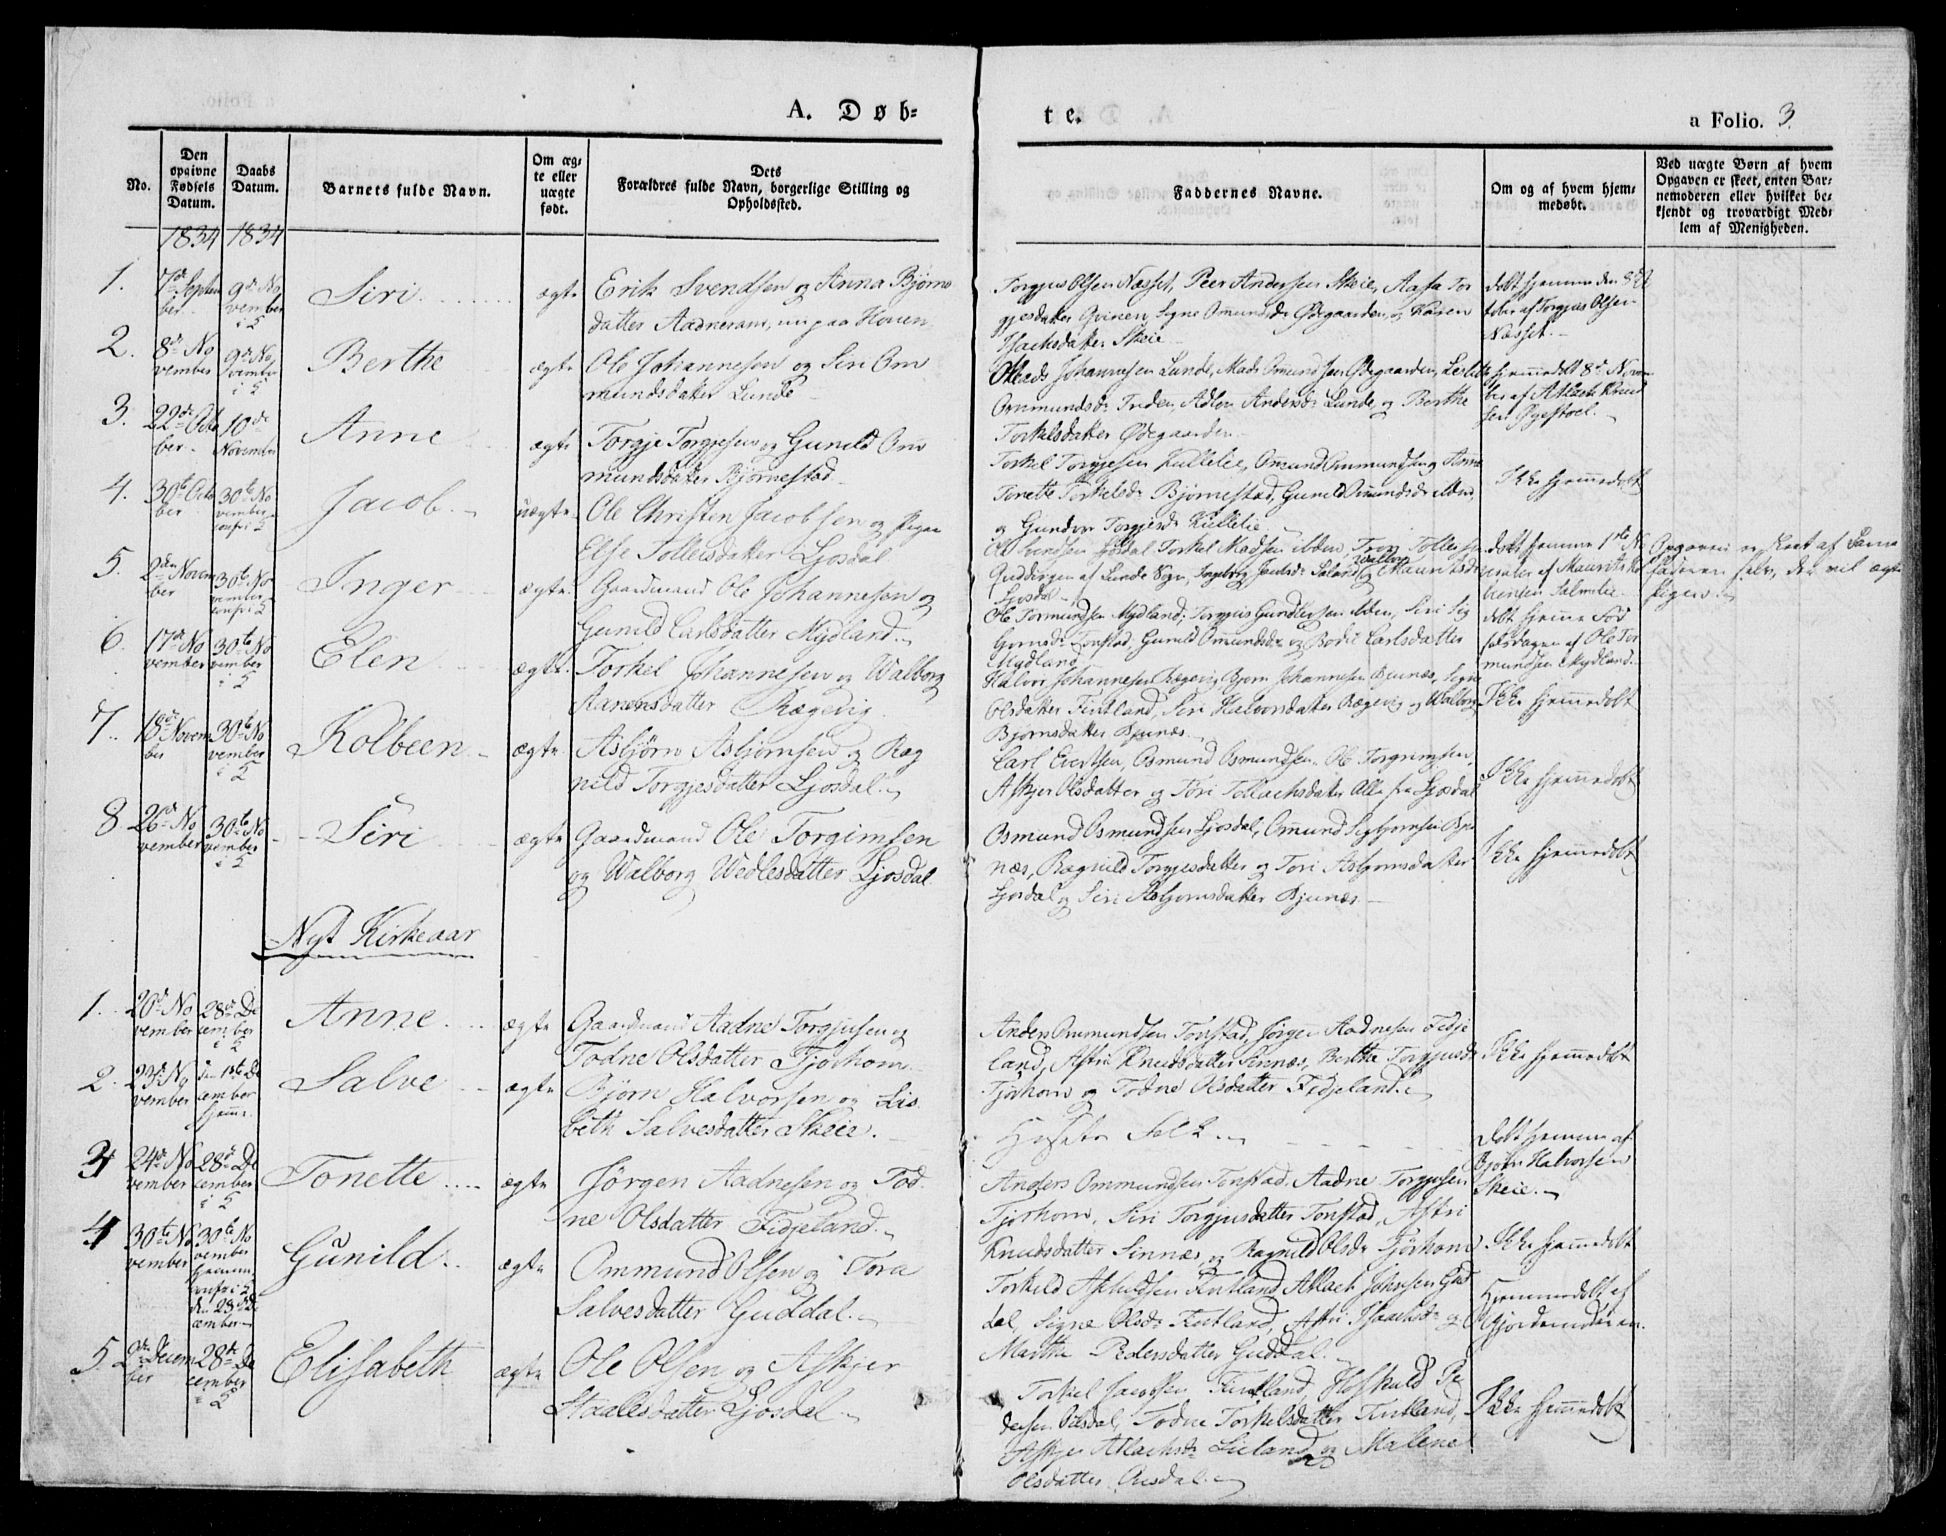 A. Døb-
te.
a Folio. 3.
No.
Den opgivne Fødsels Datum.
Daabs Datum.
Barnets fulde Navn.
Om ægte eller uægte født.
Dets Forældres fulde Navn, borgerlige Stilling og Opholdssted.
Faddernes Navne.
Om og af hvem hjemmedøbt.
Ved uægte Børn af hvem Opgaven er skeet, enten Barnemoderen eller hvilket bekjendt og troværdigt Medlem af Menigheden.
1834 1834
1. 7de Septem
ber 9de No
vember
i K
Siri
ægte
Erik Svendsen og Anna Bjørns
datter Aadneram, nu paa Hoven
Torgjus Olsen Næsset, Peer Andersen Skeie, Aasa Tor
gjesdatter Qvinen, Signe Omundsdr Ødegaarden, og Karen
Isacksdatter Skeie
døbt hjemme den 8de
af Torgjus Olsen
Næsset.
2. 8de No
vember 9de No
vember
Berthe
ægte
Ole Johannesen og Siri Om
mundsdatter Lunde
Mads Johannesen Lunde, Mads Omundsen Ødegaarden,
Ommundsdr Anders dr Lunde, og Berthe
Torkelsdatter Ødegaarden
Hjemmedøbt 8de Novem
ber af Aslack Knud
sen
3. 22de Octo
ber 10de
November
Anne
ægte
Torgje Torgjesen og Gunild Om
mundsdatter Bjørnestad
Torkel Torgjesen Omund Ommundsen og Anne
Tonette Torkelsdr Bjørnestad, Gunild Omundsdr
og Torgjesdr
Ikke hjemmedøbt
4. 30te Octo
ber 30te No
vember
Jacob
uægte
Ole Christen Jacobsen og Pigen
Else Tolleisdatter Ljosdal
Ole Svendsen Ljosdal, Torkel Madsen ibden, Tron Tolleisen
Guddingen af Lunde Sogn, Ingeborg og Mauritsdr
Ljosdal
døbt hjemme 1ste No
vember af Maurits
Salmelie
Opgaven er skeet af Barne
faderen selv, der vil ægte
Pigen
5. 2den Novem
ber 30te No
vember
Inger
ægte
Gaardmand Ole Johannesen og
Gunild Carlsdatter Mydland
Ole Tormundsen Mydland, Torgjus Gundersen ibden, Siri Sig
bjørnsdr Tonstad, Gunild Omundsdr og Bodil Carlsdatter
Mydland
døbt hjemme Fød
selsdagen af Ole Tor
mundsen Mydland
6. 17de No
vember 30te No
vember
i K
Elen
ægte
Torkel Johannesen og Walborg
Aanensdatter Rægevig
Halvor Johannesen Rægevig, Bjørn Johannesen Bjunæs, Signe
Olsdatter Fintland, Siri Halvorsdatter Rægevig og Walborg
Bjørnsdatter Bjunæs
Ikke hjemmedøbt
7. 18de Novem
ber 30te No
vember
Kolbeen
ægte
Asbjørn Asbjørnsen og Rag
nild Torgjesdatter Ljosdal
Carl Evertsen, Osmund Osmundsen, Ole Torgrimsen,
Askjer Olsdatter og Tori Tollachsdatter Alle fra Ljosdal
Ikke hjemmedøbt
8 26de No
vember 30te No
vember
Siri
ægte
Gaardmand Ole Torgimsen
og Walborg Wedlesdatter Ljosdal
Osmund Osmundsen Ljosdal, Omund Sigbjørnsen Bju
næs, Ragnild Torgjesdatter og Tori Asbjørnsdatter
Ljosdal og Siri Asbjørnsdatter Bjunæs
Ikke hjemmedøbt
Nyt Kirkeaar
1. 20de No
vember 28de De
cember
Anne
ægte
Gaardmand Aadne Torgjusen og
Todne Olsdatter Tjørhom
Anders Ommundsen Tonstad, Jørgen Aadnesen Fidje
land, Astri Knudsdatter Sinnæs, Berthe Torgjusdr
Tjørhom og Todne Olsdatter Fidjeland
Ikke hjemmedøbt
2. 23de No
vember den 13te De
cember
hjemme
Salve
ægte
Bjørn Halvorsen og Lis
beth Salvesdatter Skeie
Husets Folk
Døbt hjemme af
Bjørn Halvorsen
Skeie
3 24de No
vember 28de De
cember
Tonette
ægte
Jørgen Aadnesen og Tod
ne Olsdatter Fidjeland
Anders Ommundsen Tonstad, Aadne Torgjusen
Tjørhom, Siri Torgjusdatter Tonstad, Astri
Knudsdatter Sinnæs, og Ragnild Olsdr Tjørhom
Ikke hjemmedøbt
4 30te No
vember 30te No
vember
hjemme
confr: i K
den 28de De
cember
Gunild
ægte
Ommund Olsen og Tora
Salvesdatter Guddal
Torkild Fintland, Atlach Johnsen Gud
dal, Signe Olsdr Fintland, Astri Isaachsdr og
Marthe Pedersdatter Guddal
Hjemmedøbt af
Gjordemoderen
5. 2den Decem
ber 28de De
cember
Elisabeth
ægte
Ole Olsen og Askjer
Staalesdatter Ljosdal
Torkel Jacobsen Fintland, Hoskuld Pe
dersen Todne Torkelsdatter Fintland,
Askjer Atlachsdr Lieland og Malene
Olsdatter Ousdal
Ikke hjemmedøbt